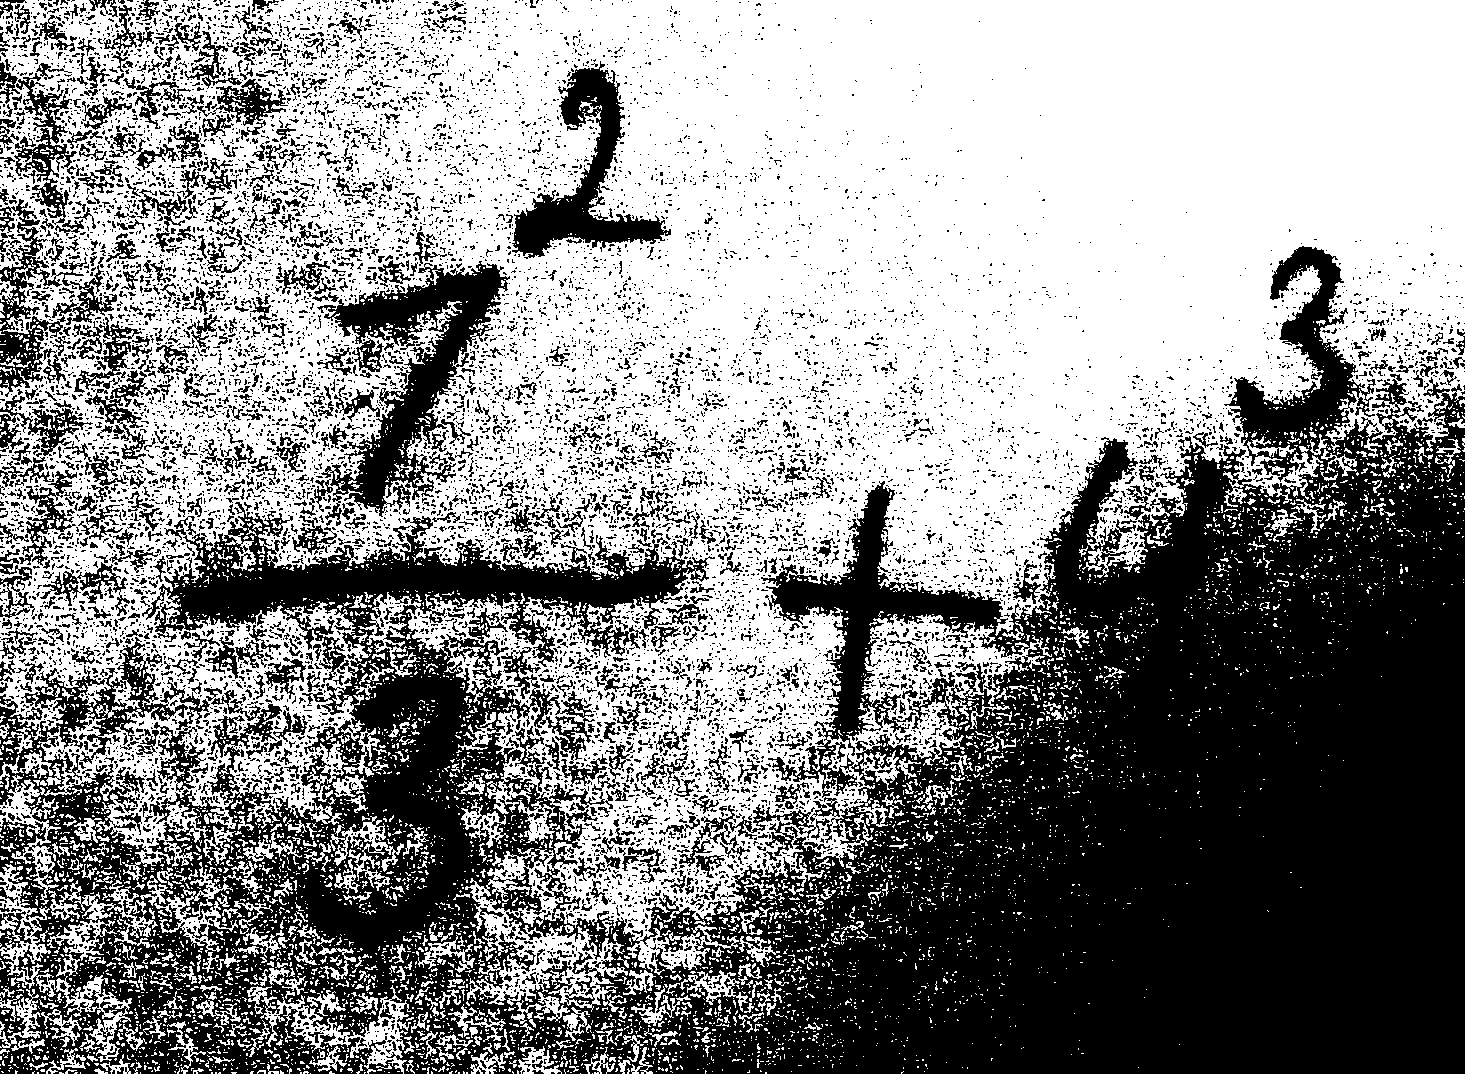 7²/3 + 4³